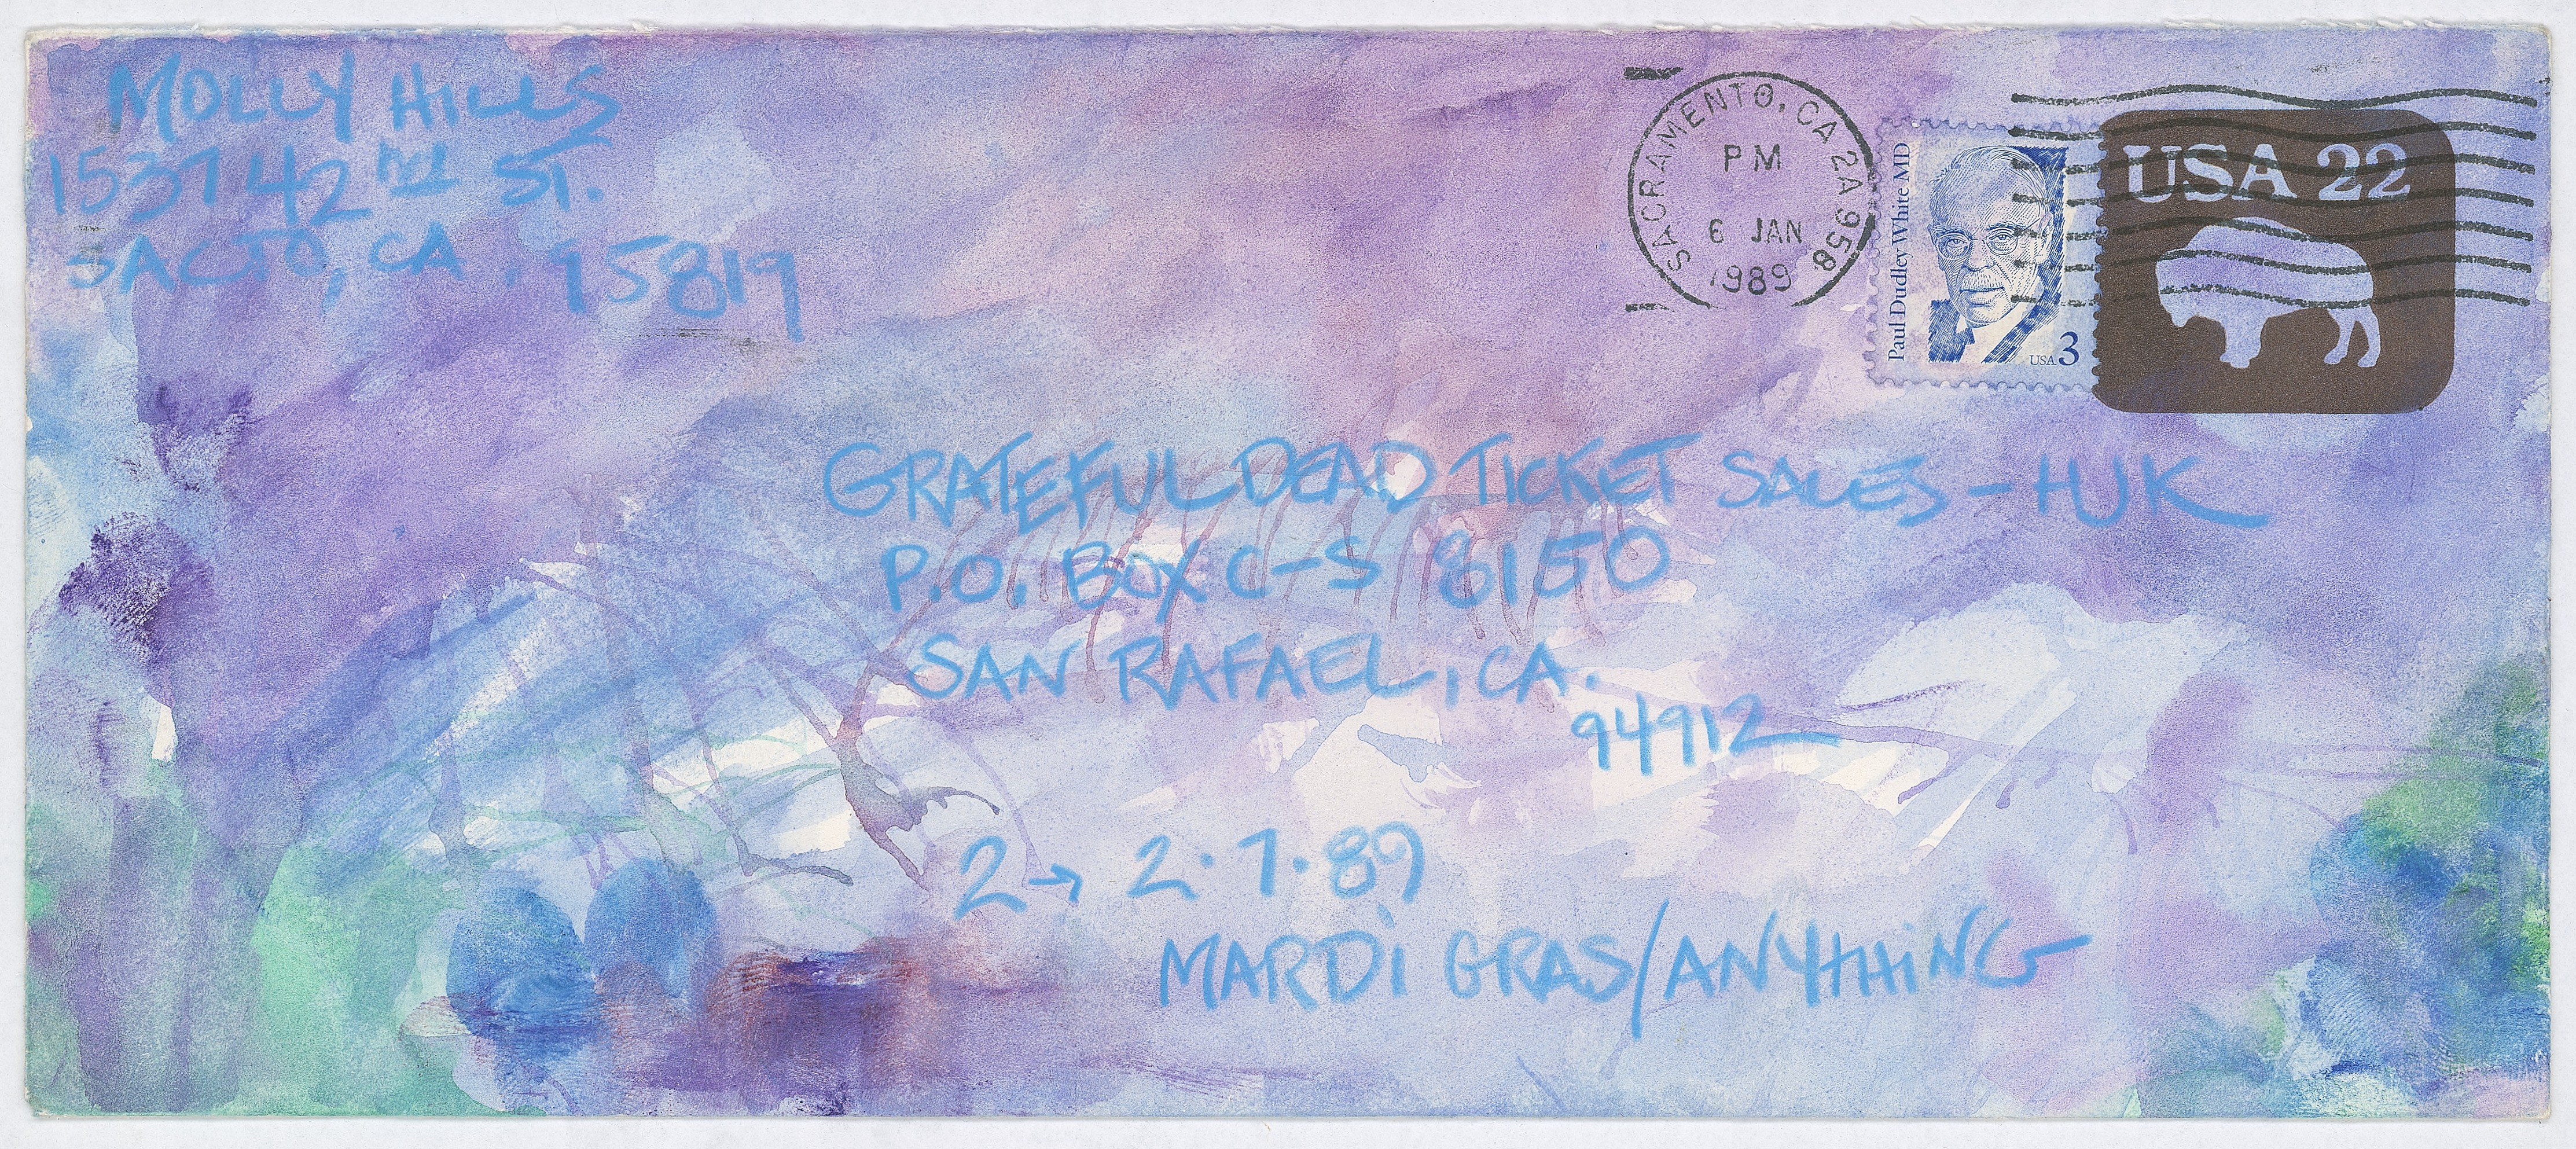 MOLLY HILLS
1537 42nd ST.
SACTO, CA. 95819
SACRAMENTO, CA 2A 958
PM
6 JAN
1989
Paul Dudley White MD
USA 3
USA 22
GRATEFUL DEAD TICKET SALES - HJK
P.O. BOX C-S 8150
SAN RAFAEL, CA.
94912
2→ 2.7.89
MARDI GRAS/ANYTHING